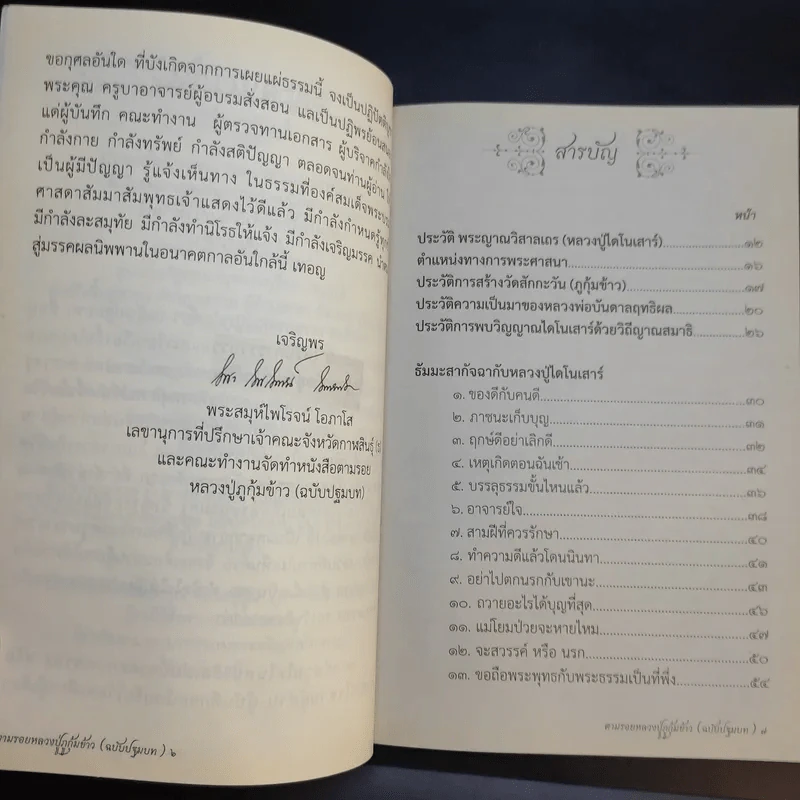 ขอกุศลอันใด ที่บังเกิดจากการเผยแผ่ธรรมนี้ จงเป็นปฏิปัตติบูชา
พระคุณ ครูบาอาจารย์ผู้อบรมสั่งสอน แลเป็นปฏิพรย้อนสนอง
แด่ผู้บันทึก คณะทำงาน ผู้ตรวจทานเอกสาร ผู้บริจาคกำลังใจ
กำลังกาย กำลังทรัพย์ กำลังสติปัญญา ตลอดจนท่านผู้อ่าน
เป็นผู้มีปัญญา รู้แจ้งเห็นทาง ในธรรมที่องค์สมเด็จพระบรม
ศาสดาสัมมาสัมพุทธเจ้าแสดงไว้ดีแล้ว มีกำลังกำหนดรู้ทุกข์
มีกำลังละสมุทัย มีกำลังทำนิโรธให้แจ้ง มีกำลังเจริญมรรค
สู่มรรคผลนิพพานในอนาคตกาลอันใกล้นี้ เทอญ
เจริญพร
พระสมุห์ไพโรจน์ โอภาโส
เลขานุการที่ปรึกษาเจ้าคณะจังหวัดกาฬสินธุ์
และคณะทำงานจัดทำหนังสือตามรอย
หลวงปู่ภูกุ้มข้าว (ฉบับปฐมบท)
ตามรอยหลวงปู่ภูกุ้มข้าว (ฉบับปฐมบท) ๖
สารบัญ
หน้า
ประวัติ พระญาณวิสาลเถร (หลวงปู่ไดโนเสาร์)....................๑๒
ตำแหน่งทางการพระศาสนา....................๑๖
ประวัติการสร้างวัดสักกะวัน (ภูกุ้มข้าว)....................๑๗
ประวัติความเป็นมาของหลวงพ่อบันดาลฤทธิผล....................๒๐
ประวัติการพบวิญญาณไดโนเสาร์ด้วยวิถีญาณสมาธิ....................๒๖
ธัมมะสากัจฉากับหลวงปู่ไดโนเสาร์
๑. ของดีกับคนดี....................๓๐
๒. ภาชนะเก็บบุญ....................๓๑
๓. ฤกษ์ดีอย่าเลิกดี....................๓๒
๔. เหตุเกิดตอนฉันเช้า....................๓๔
๕. บรรลุธรรมขั้นไหนแล้ว....................๓๖
๖. อาจารย์ใจ....................๓๘
๗. สามฝีที่ควรรักษา....................๔๐
๘. ทำความดีแล้วโดนนินทา....................๔๑
๙. อย่าไปตกนรกกับเขานะ....................๔๓
๑๐. ถวายอะไรได้บุญที่สุด....................๔๖
๑๑. แม่โยมป่วยจะหายไหม....................๔๗
๑๒. จะสวรรค์ หรือ นรก....................๕๐
๑๓. ขอถือพระพุทธกับพระธรรมเป็นที่พึ่ง....................๕๔
ตามรอยหลวงปู่ภูกุ้มข้าว (ฉบับปฐมบท) ๗